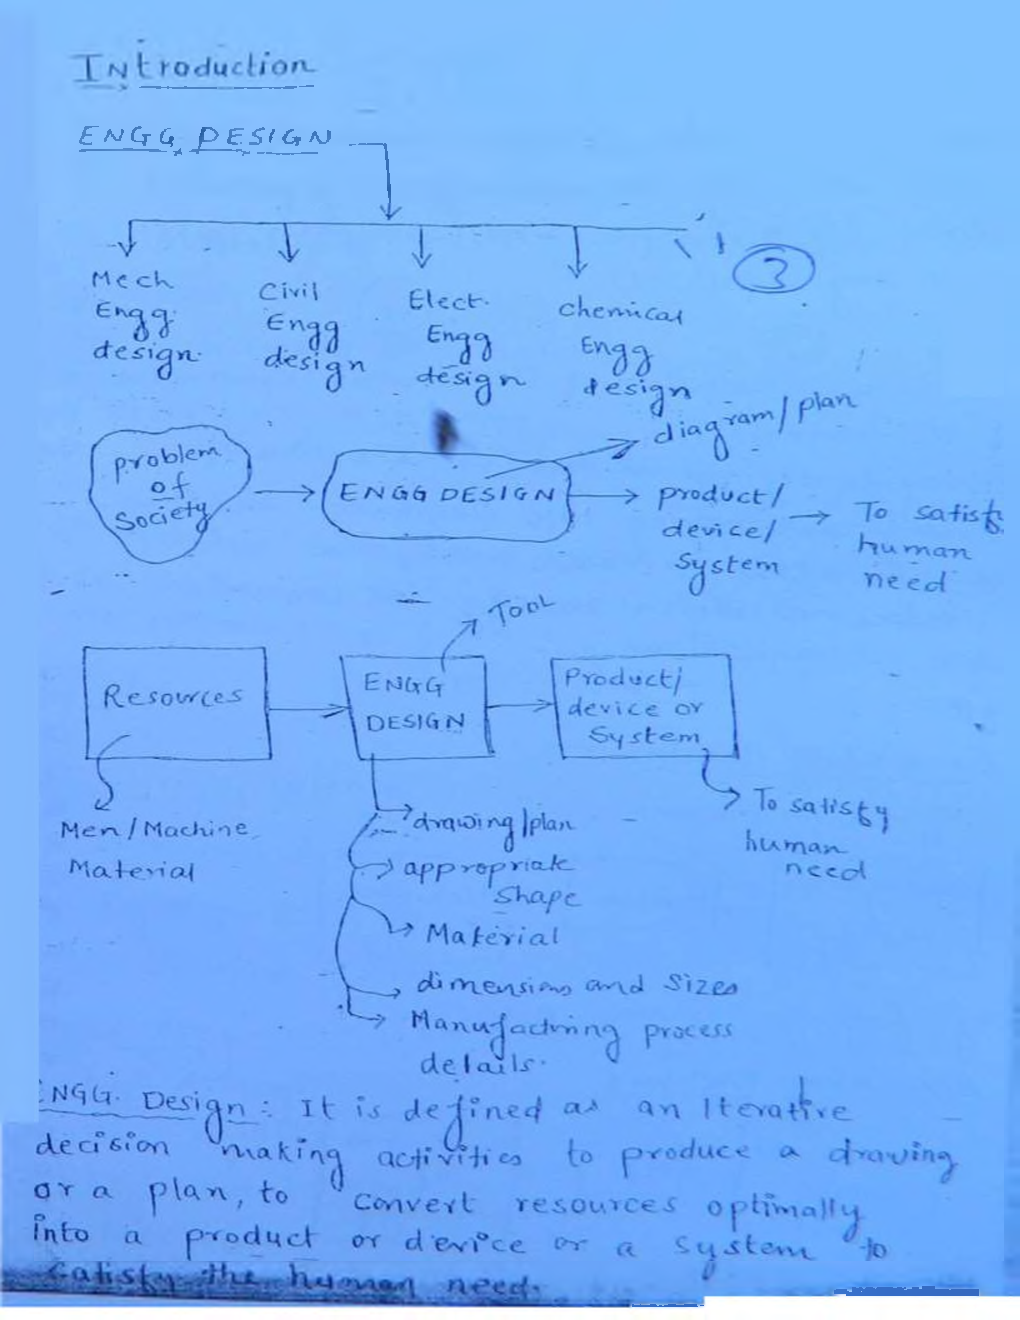 Introduction
ENGG DESIGN
3
Mech
Engg.
design.
Civil
Engg
design
Elect.
Engg
design
chemical
Engg
design
problem
of
Society
ENGG DESIGN
diagram/plan
product/
device/
System
To satisfy
human
need
TOOL
Resources
ENGG
DESIGN
Product/
device or
System
Men/Machine
Material
To satisfy
human
need
drawing/plan
appropriate
Shape
Material
dimensions and Sizes
Manufacturing process
details.
ENGG. Design: It is defined as an Iterative
decision making activities to produce a drawing
or a plan, to convert resources optimally
into a product or device or a system to
Satisfy the human need.